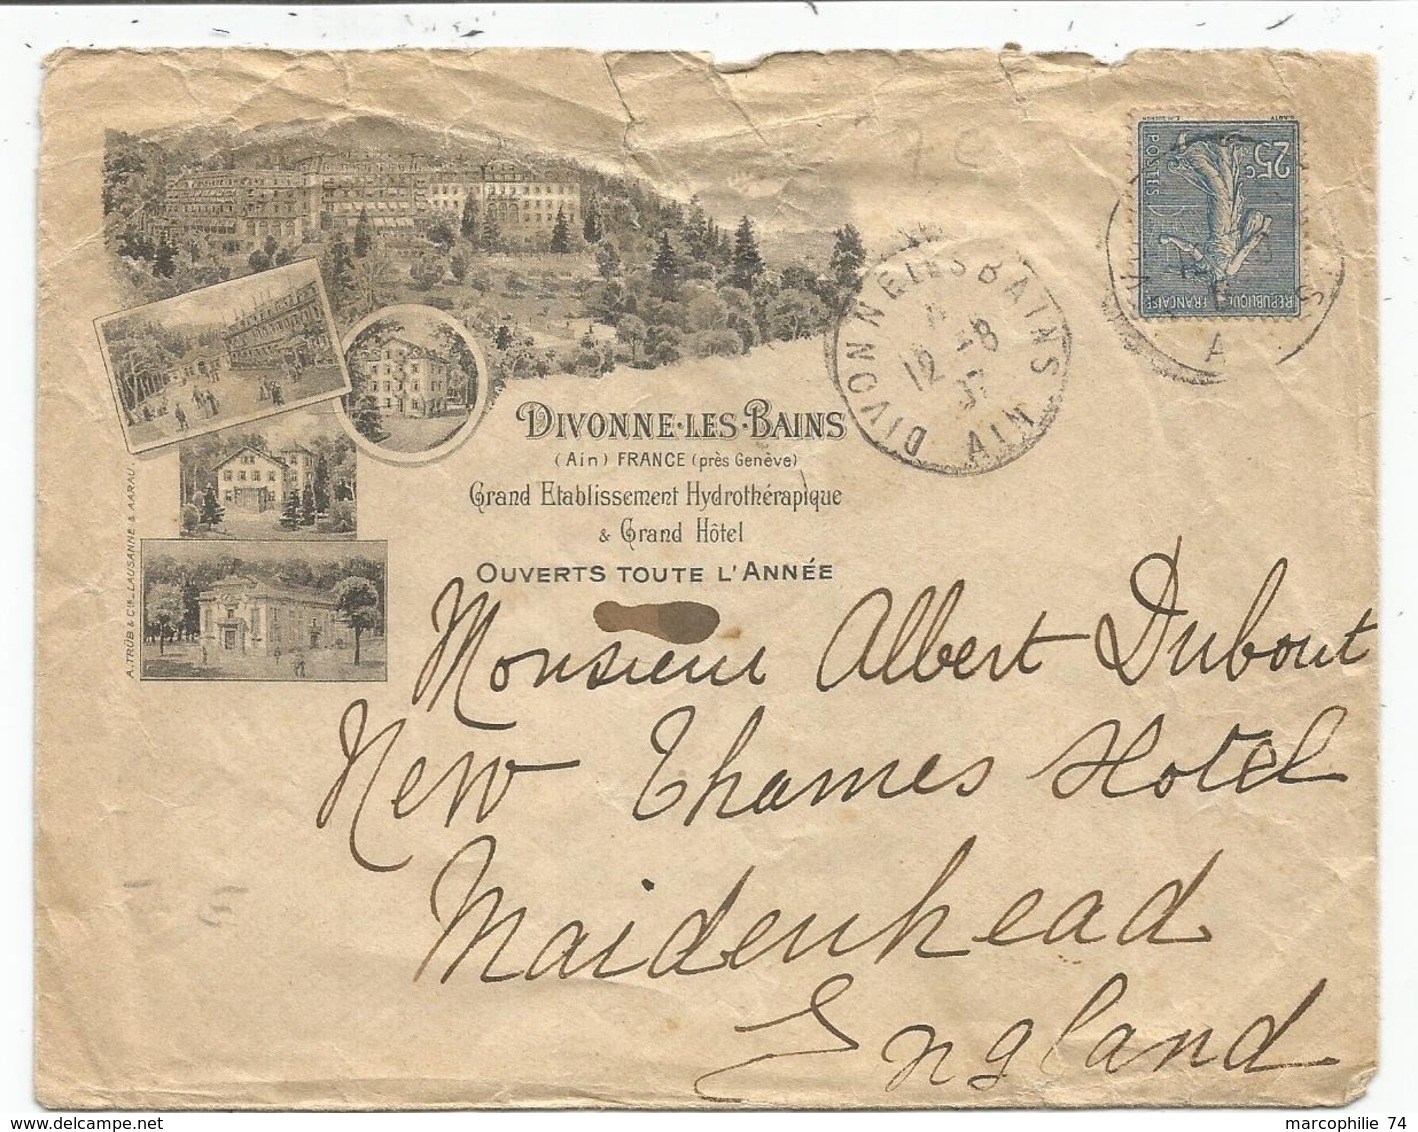 DIVONNE·LES·BAINS
(Ain) FRANCE (près Genève)
Grand Etablissement Hydrothérapique
& Grand Hôtel
OUVERTS TOUTE L'ANNÉE
A. TRÜB & Cie LAUSANNE & AARAU.
DIVONNE LES BAINS
12 -8
AIN
25c
POSTES
REPUBLIQUE FRANÇAISE
Monsieur Albert Dubout
New Thames Hotel
Maidenhead
England
delcampe.net
marcophilie 74